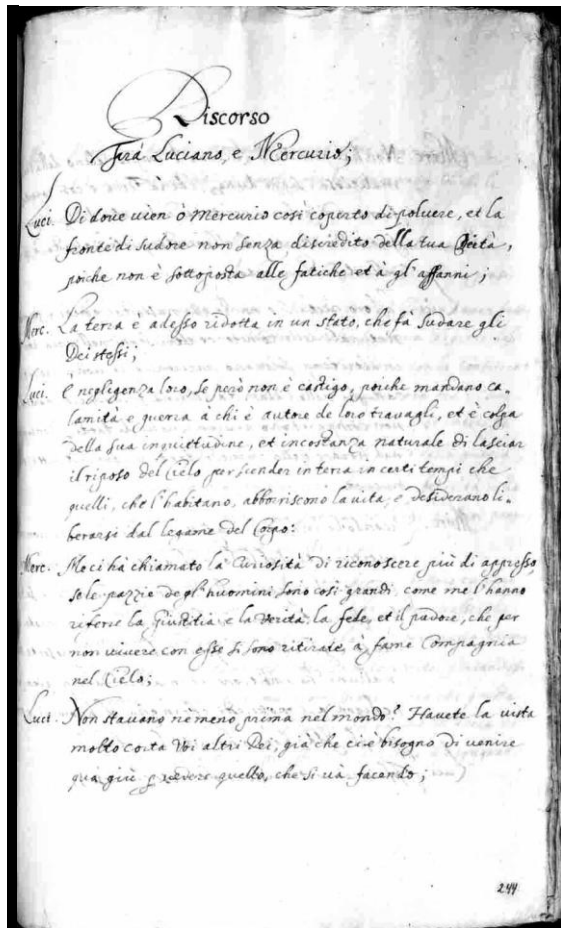 Discorso
Frà Luciano, e Mercurio;
Luci. Di doue uien ò Mercurio così coperto di poluere, et la
fronte di sudore non senza discredito della tua Deità,
poiche non è sottoposta alle fatiche et à gl'affanni;
Merc. La terra è adesso ridotta in un stato, che fà sudare gli
Dei stessi;
Luci. è negligenza loro, se però non è castigo, poiche mandano ca-
lamità e guerra à chi è autore de loro trauagli, et è colpa
della sua inquittudine, et incostanza naturale di lasciar
il riposo del Cielo per scender in terra in certi tempi che
quelli, che l'habitano, abborriscono la uita, e desiderano li-
berarsi dal legame del Corpo:
Merc. Mo ci hà chiamato la Curiosità di riconoscere più di appresso,
se le pazzie degl'huomini sono così grandi, come me l'hanno
riferse la Giustitia e la Verità, la fede, et il pudore, che per
non uiuere con esse si sono ritirate à farne Compagnia
nel Cielo;
Luci. Non stauano nemeno prima nel mondo? Hauete la uista
molto corta Voi altri Dei, già che ci è bisogno di uenire
quà giù p uedere quello, che si uà facendo;
244